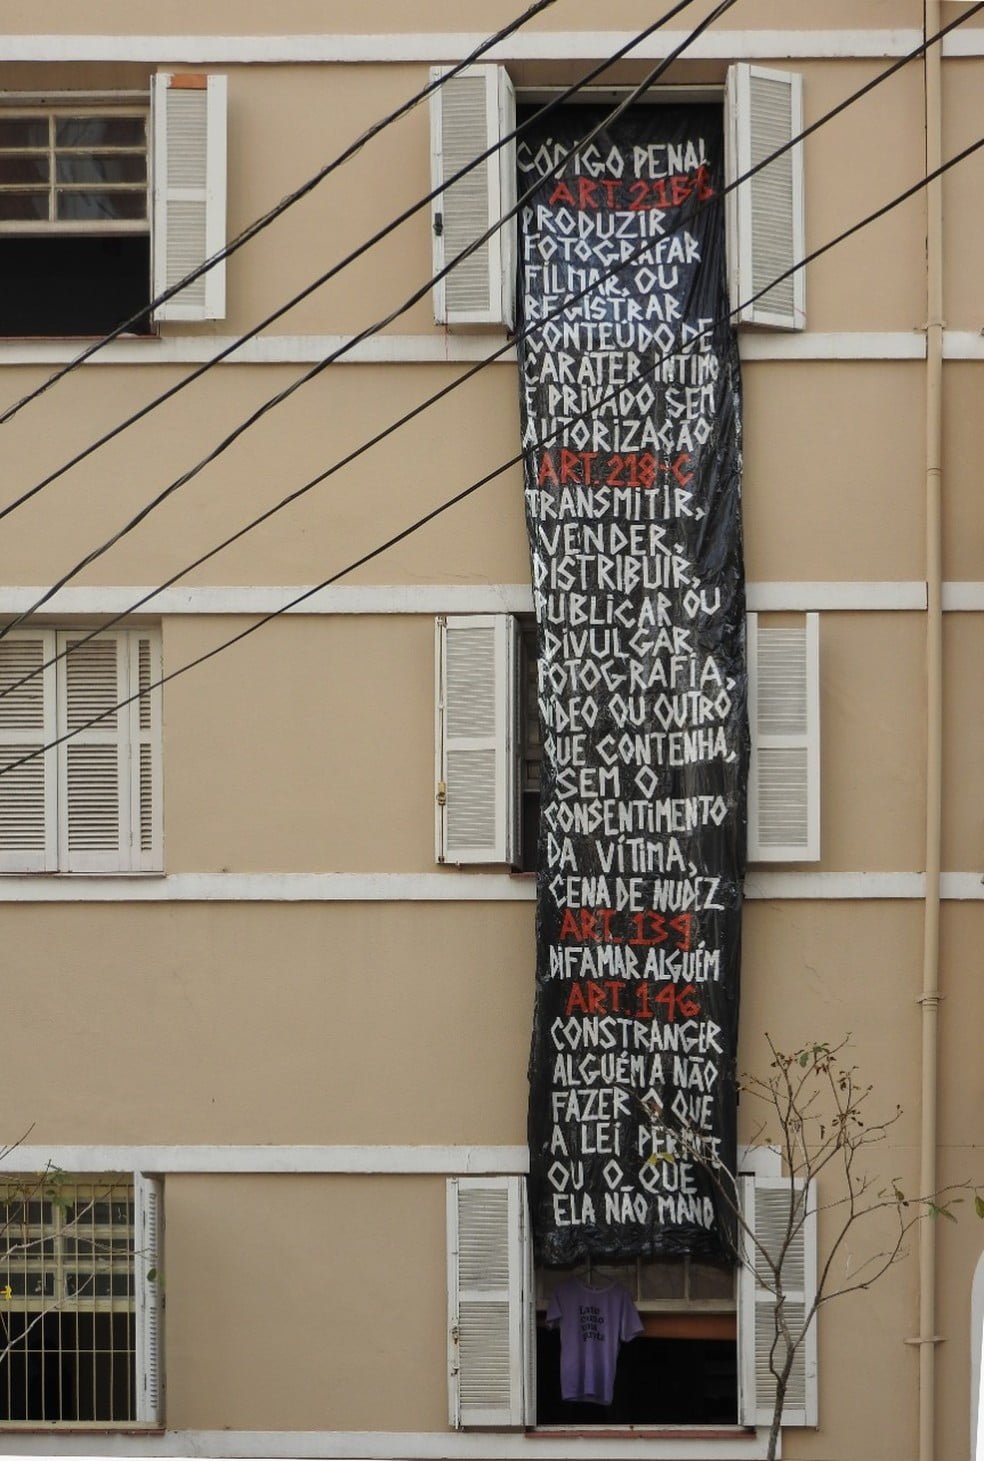 CÓDIGO PENAL
ART. 216-B
PRODUZIR
FOTOGRAFAR
FILMAR, OU
REGISTRAR
CONTEÚDO DE
CARÁTER ÍNTIMO
E PRIVADO SEM
AUTORIZAÇÃO
ART. 218-C
TRANSMITIR,
VENDER,
DISTRIBUIR,
PUBLICAR OU
DIVULGAR
FOTOGRAFIA,
VÍDEO OU OUTRO
QUE CONTENHA,
SEM O
CONSENTIMENTO
DA VÍTIMA,
CENA DE NUDEZ
ART. 139
DIFAMAR ALGUÉM
ART. 146
CONSTRANGER
ALGUÉM A NÃO
FAZER O QUE
A LEI PERMITE
OU O QUE
ELA NÃO MAND
Lute
como
uma